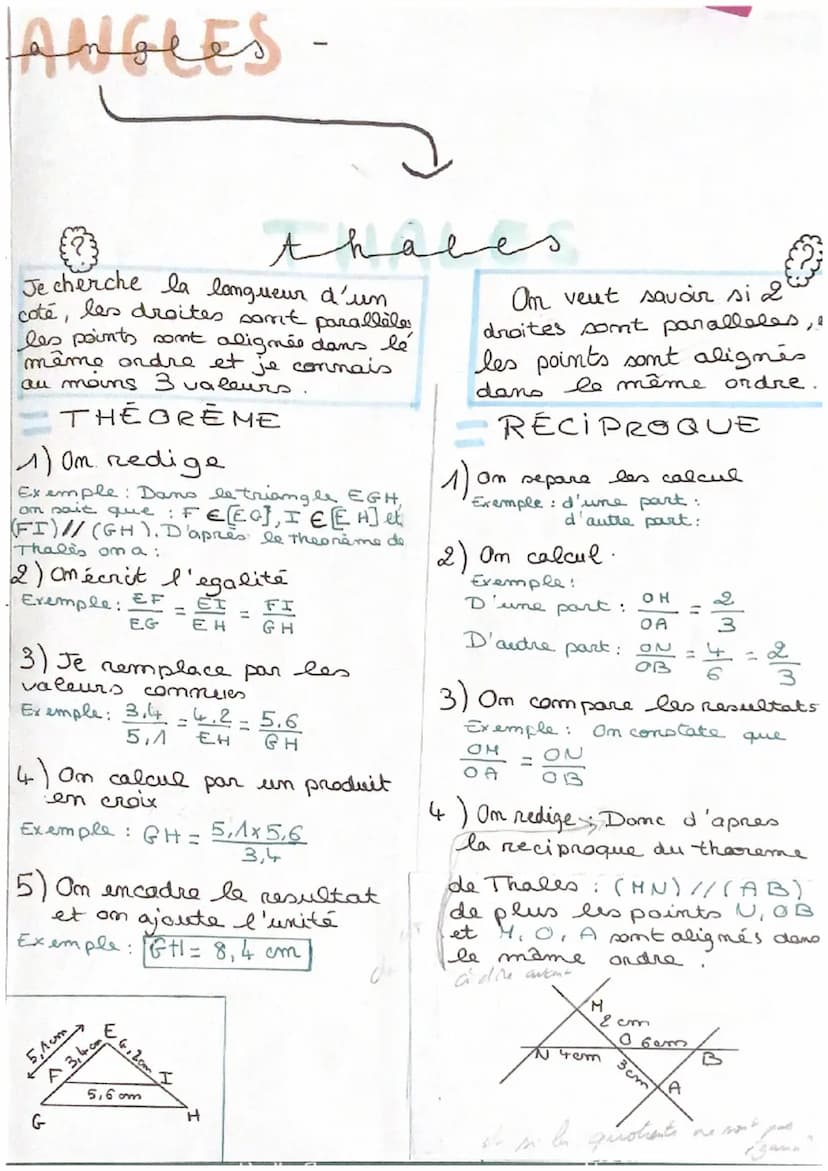 ANGLES
angles -
THALES
thales
?
Je cherche la longueur d'un
coté, les droites sont parallèles
les points sont alignés dans le
même ordre et je connais
au moins 3 valeurs.
= THÉORÈME
1) On redige
Exemple : Dans le triangle EGH,
on sait que : F ∈ [EG], I ∈ [EH] et
(FI) // (GH). D'après le theorème de
Thalès on a :
2) On écrit l'egalité
Exemple : EF/EG = EI/EH = FI/GH
3) Je remplace par les
valeurs connues
Exemple : 3,4/5,1 = 4,2/EH = 5,6/GH
4) On calcul par un produit
en croix
Exemple : GH = 5,1 x 5,6/3,4
5) On encadre le resultat
et on ajoute l'unité
Exemple : GH = 8,4 cm
5,1cm
E
3,4cm
4,2cm
F
I
5,6cm
G
H
?
On veut savoir si 2
droites sont paralleles,
les points sont alignés
dans le même ordre.
= RÉCIPROQUE
1) On separe les calcul
Exemple : d'une part :
d'autre part :
2) On calcul.
Exemple :
D'une part : OH/OA = 2/3
D'autre part : ON/OB = 4/6 = 2/3
3) On compare les resultats
Exemple : On constate que
OM/OA = ON/OB
4) On redige : Donc d'apres
la reciproque du theoreme
de Thales : (MN) // (AB)
de plus les points N, O B
et M, O, A sont alignés dans
le même ordre.
à dire avant
M
2 cm
O 6cm
N 4cm
B
3cm
A
si les quotients ne sont pas
égaux